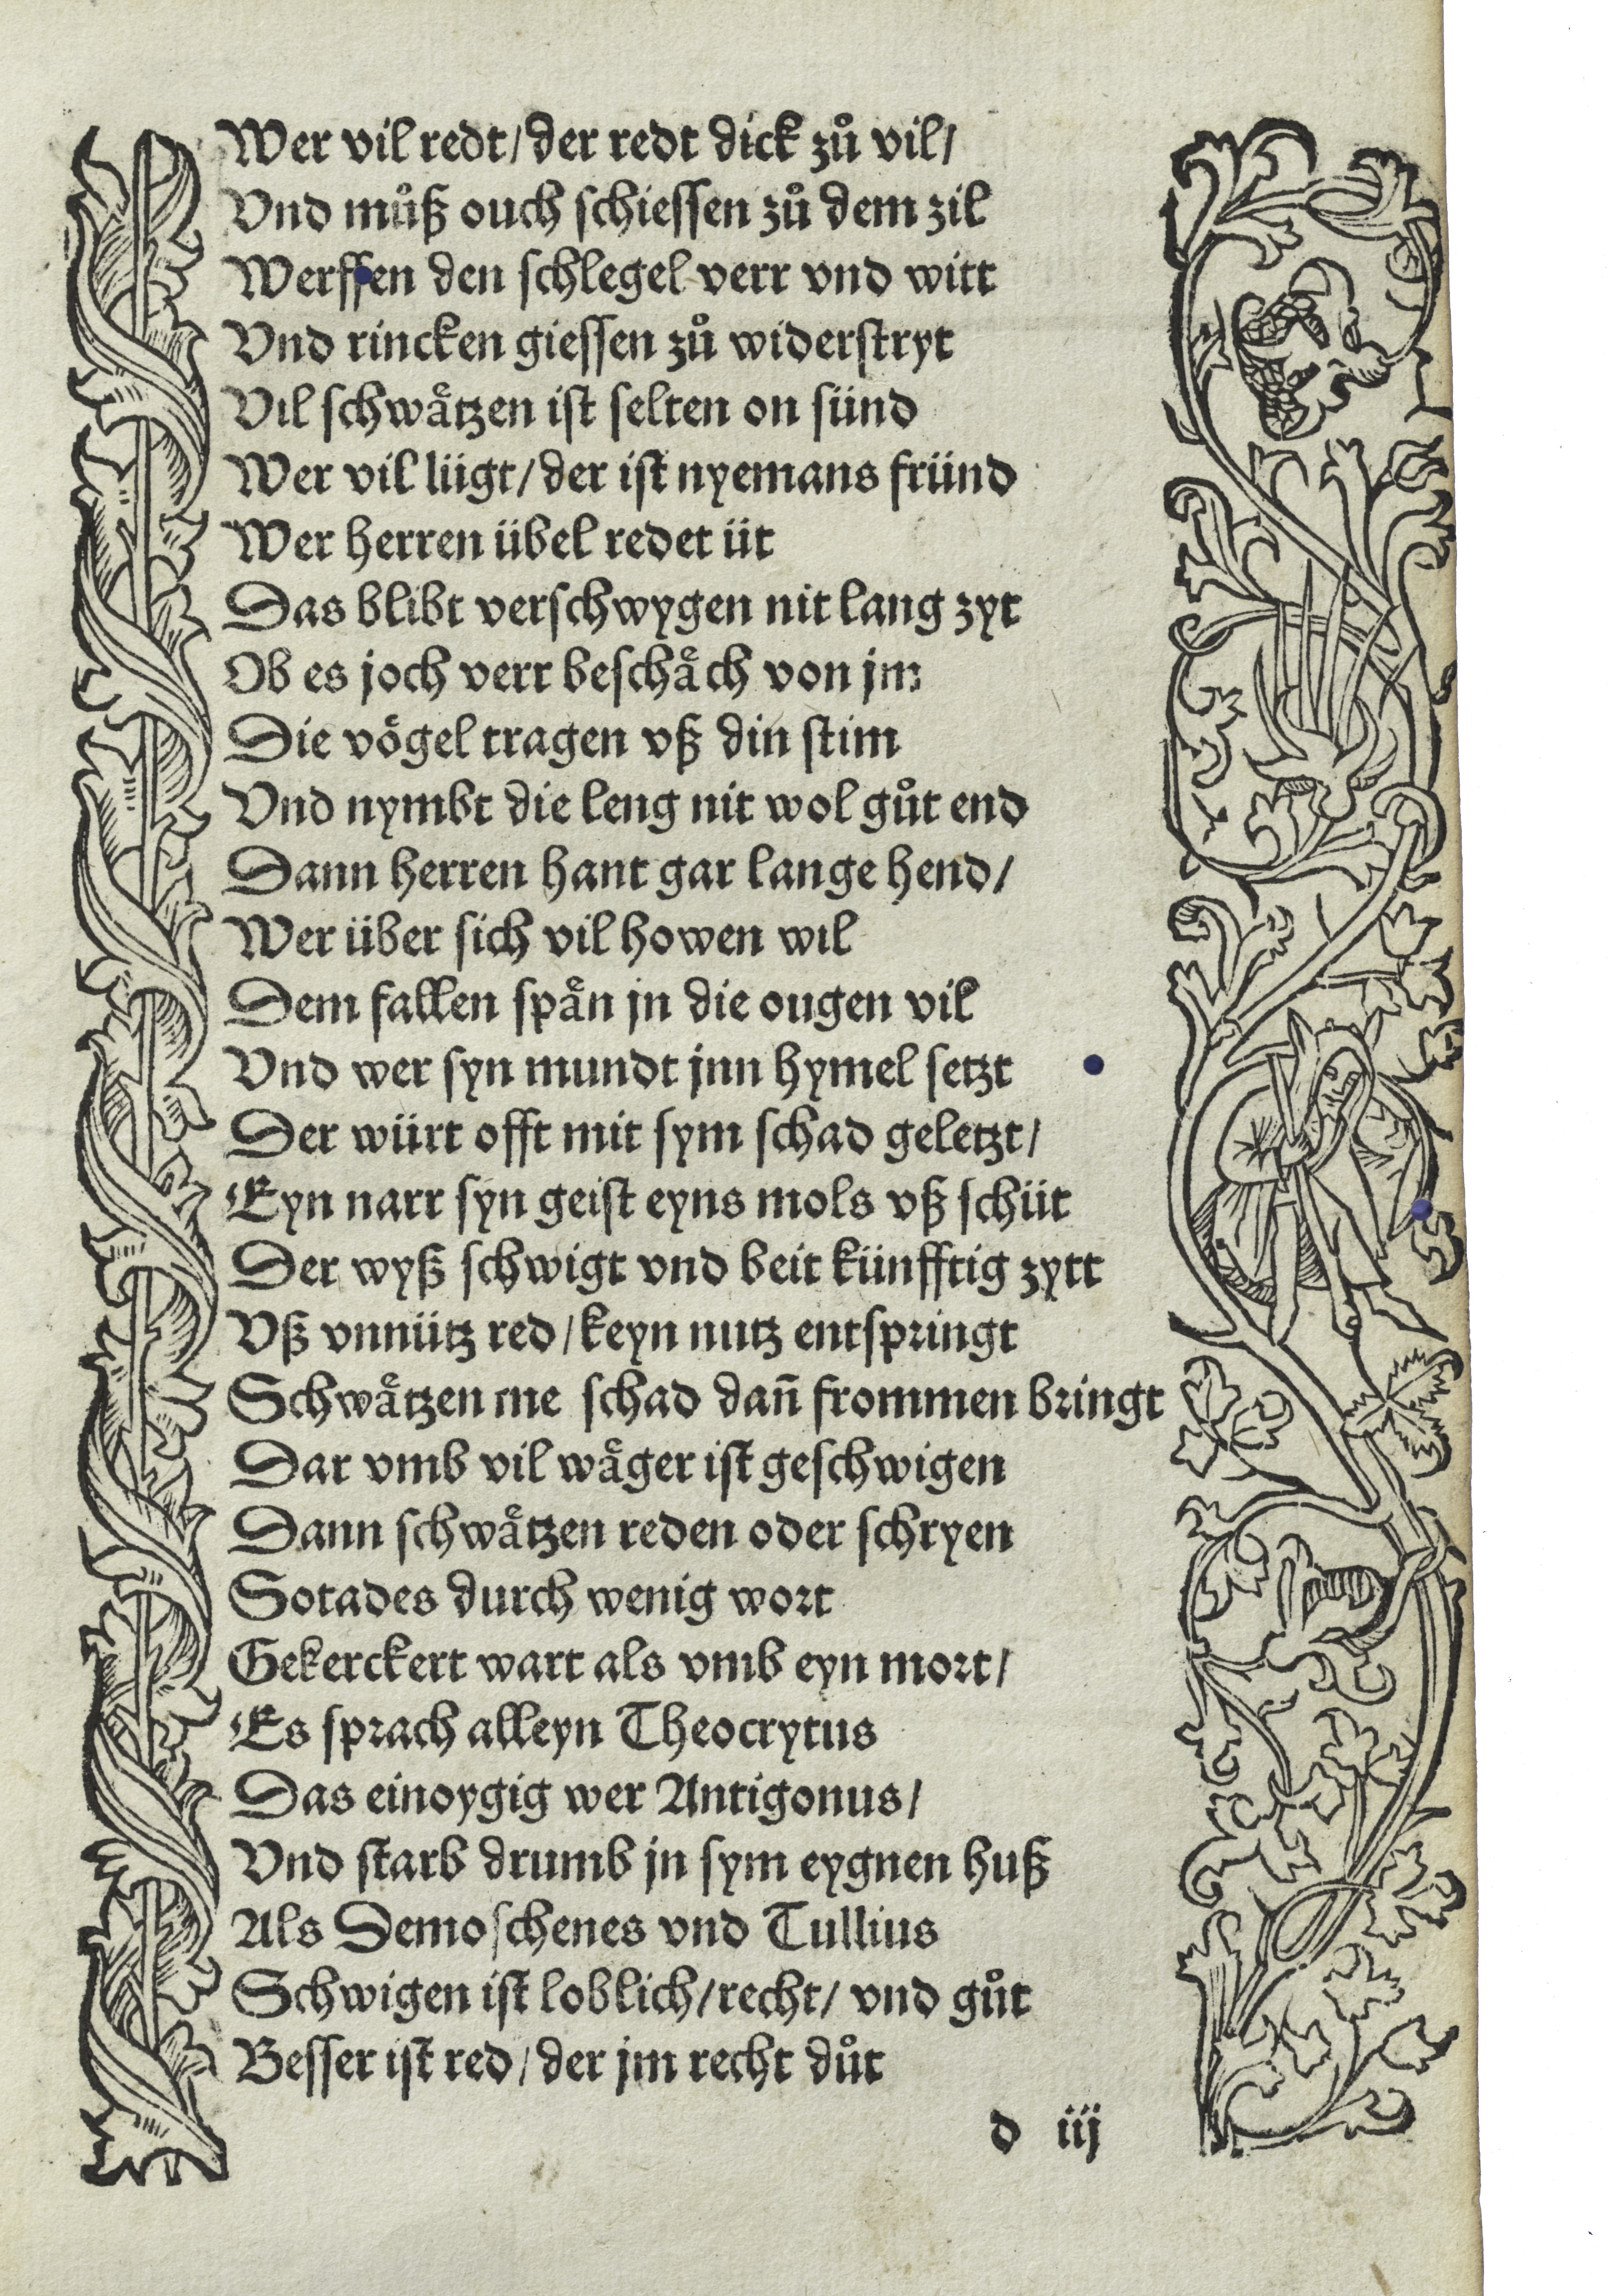 Wer vil redt/ der redt dick zů vil/
Vnd můß ouch schiessen zů dem zil
Werffen den schlegel verr vnd witt
Vnd rincken giessen zů widerstryt
Vil schwåtzen ist selten on sünd
Wer vil lügt/ der ist nyemans fründ
Wer herren übel redet üt
Das blibt verschwygen nit lang zyt
Ob es joch verr beschåch von jm
Die vögel tragen vß din stim
Vnd nymbt die leng nit wol gůt end
Dann herren hant gar lange hend/
Wer über sich vil howen wil
Dem fallen spån jn die ougen vil
Vnd wer syn mundt jnn hymel setzt
Der würt offt mit sym schad geletzt/
Eyn narr syn geist eyns mols vß schüt
Der wyß schwigt vnd beit künfftig zytt
Vß vnnütz red/ keyn nutz entspringt
Schwåtzen me schad dañ frommen bringt
Dar vmb vil wåger ist geschwigen
Dann schwåtzen reden oder schryen
Sotades durch wenig wort
Gekerckert wart als vmb eyn mort/
Es sprach alleyn Theocrytus
Das einoygig wer Antigonus/
Vnd starb drumb jn sym eygnen huß
Als Demoschenes vnd Tullius
Schwigen ist loblich/ recht/ vnd gůt
Besser ist red/ der jm recht důt
d iij